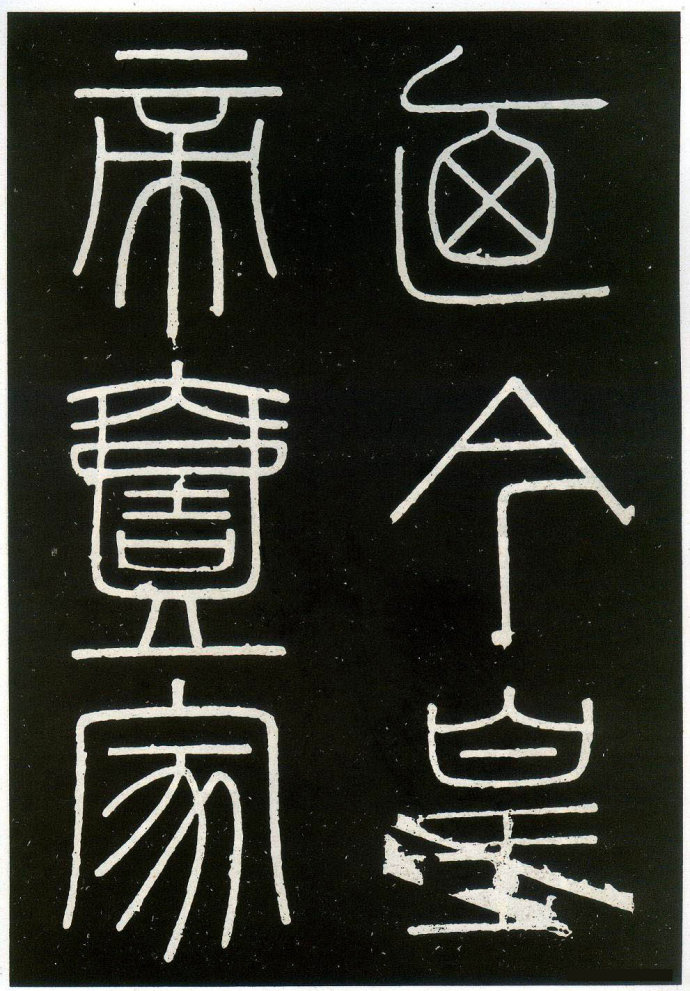 迺今皇
帝壹家